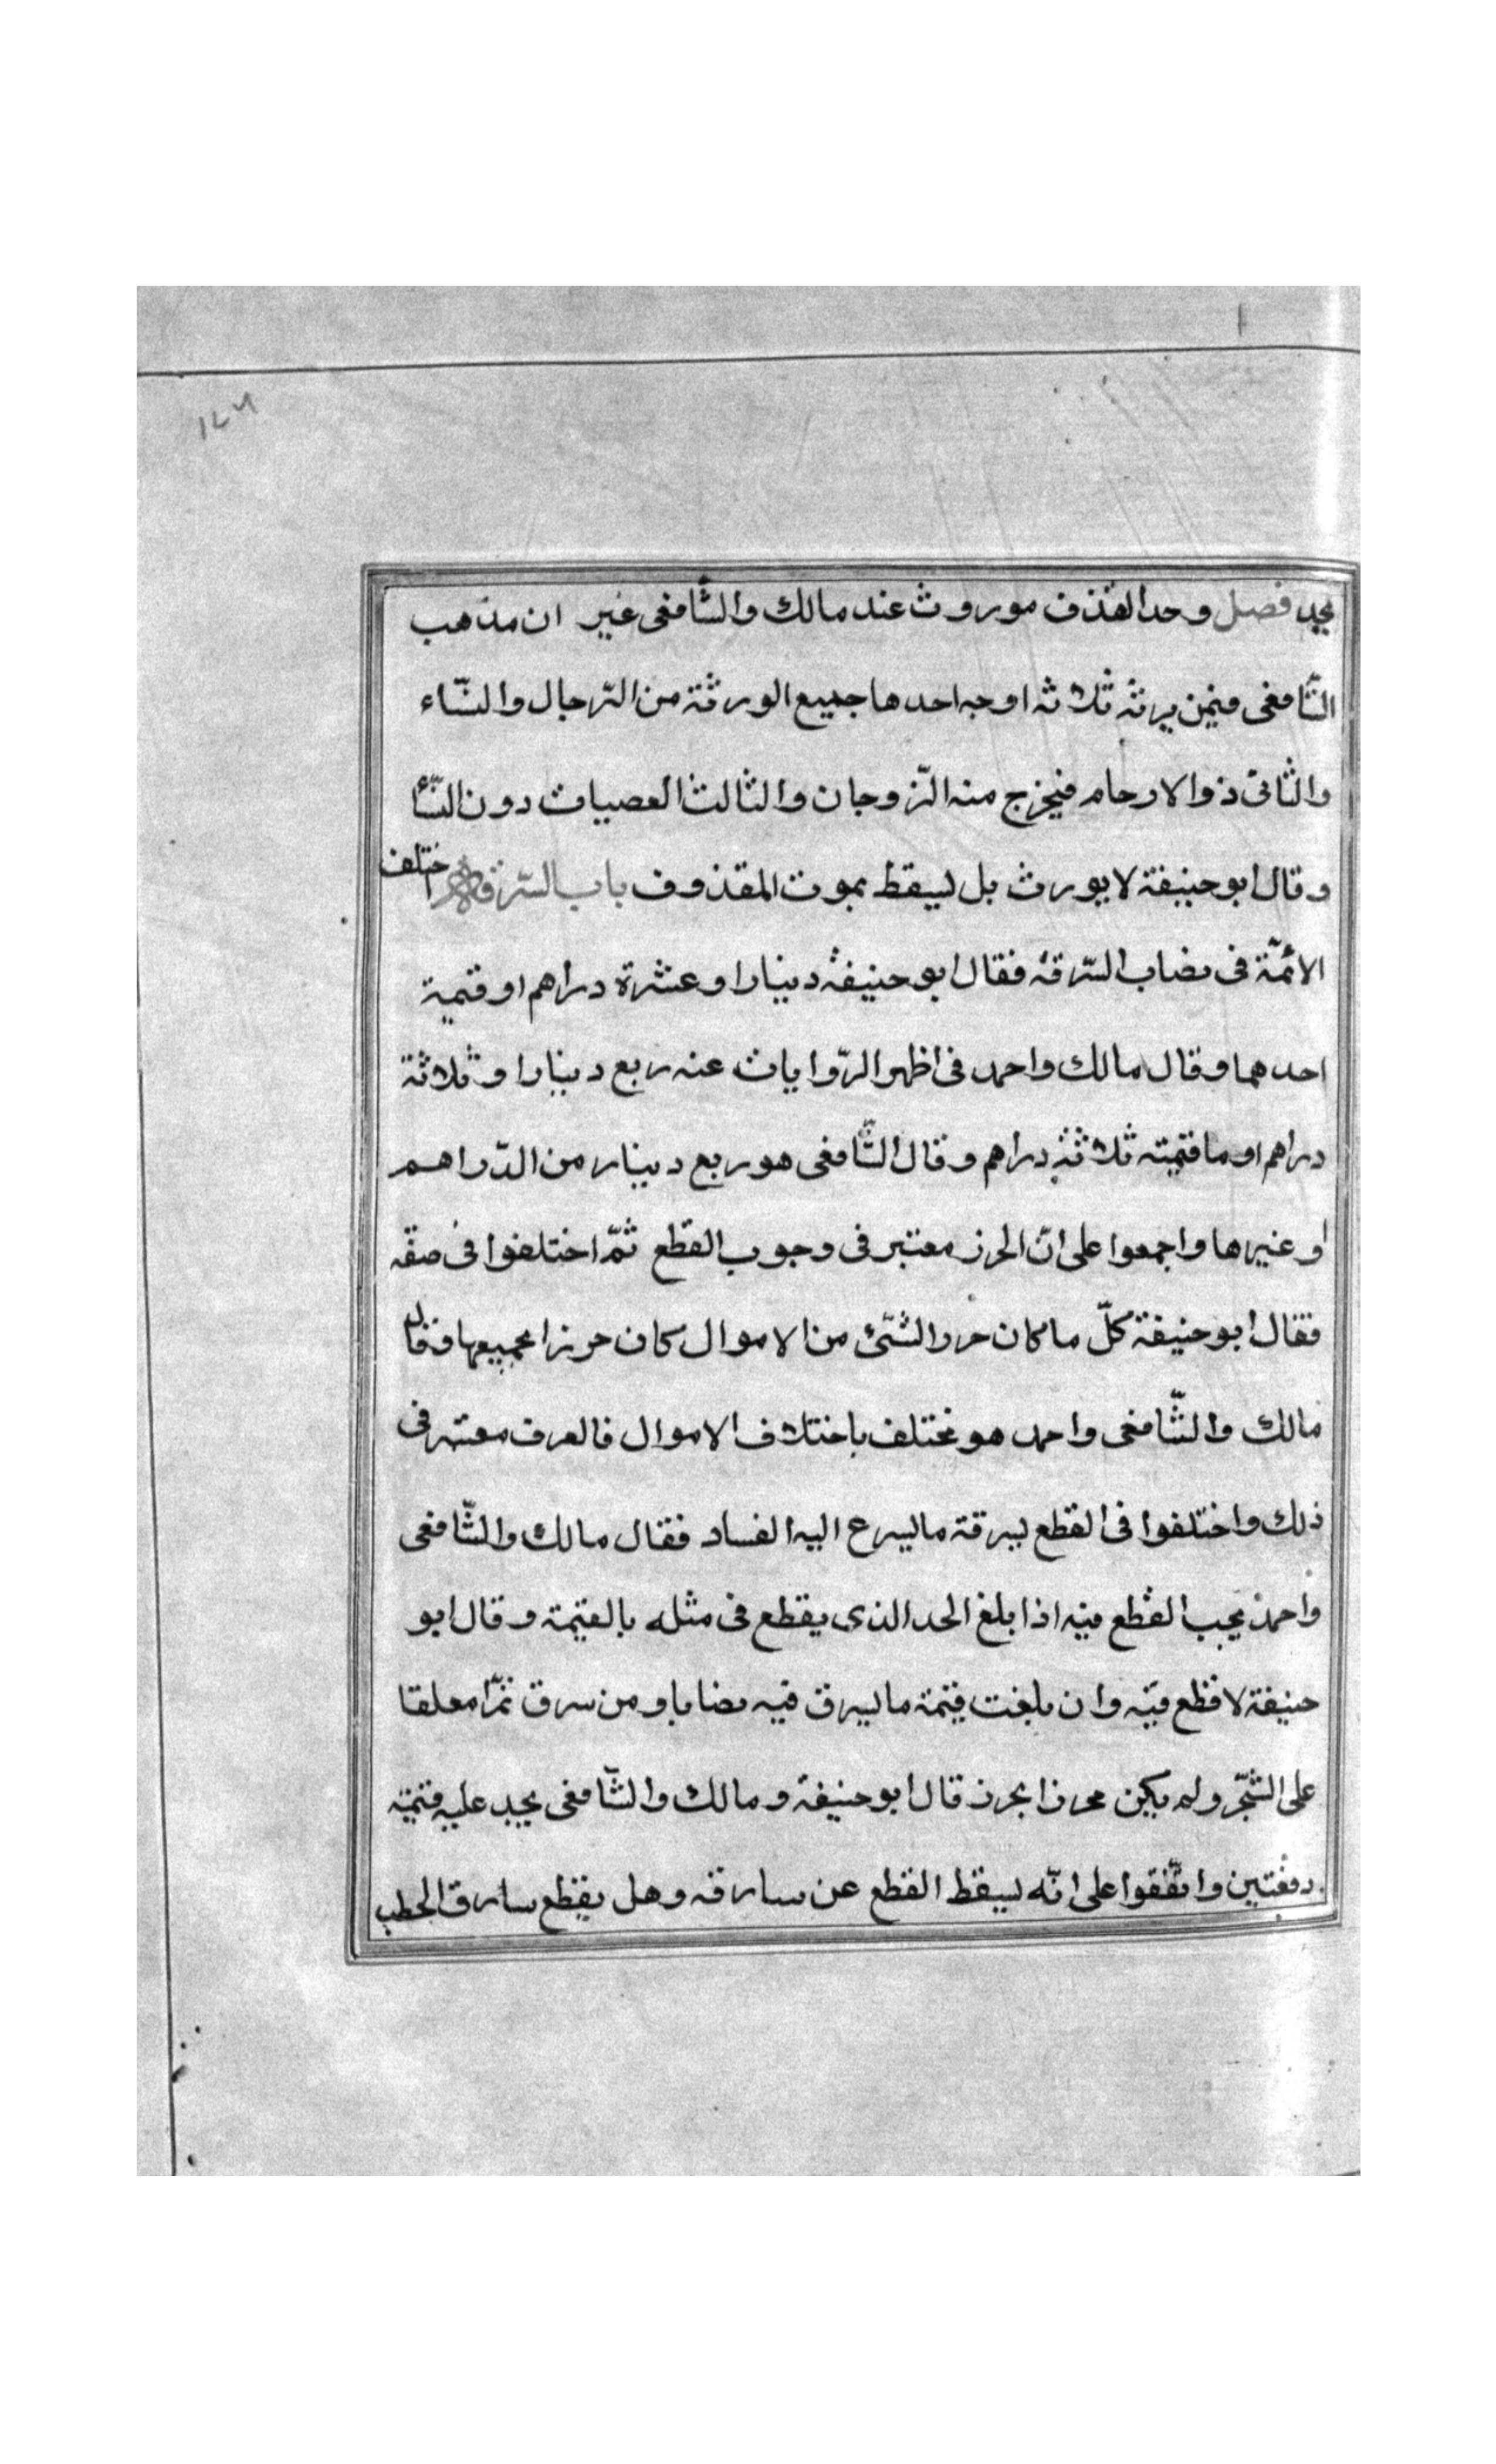 ١٤٦
يجد فصل وحد القذف موروث عند مالك والشّافعى غير ان مذهب
الشّافعى فيمن يرثه ثلاثه اوجه احدها جميع الورثة من الرّجال والنّساء
والثانى ذوا الارحام فيخرج منه الزّوجان والثالث العصبات دون النّسأ
وقال ابو حنيفة لا يورث بل يسقط بموت المقذوف باب السّرقة اختلف
الائمّة فى نصاب السّرقة فقال ابو حنيفة دينارا وعشرة دراهم او قيمة
احدهما وقال مالك واحمد فى اظهر الرّوايات عنه ربع دينارا وثلاثة
دراهم او ما قيمته ثلاثة دراهم وقال الشّافعى هو ربع دينار من الدّراهم
او غيرها واجمعوا على انّ الحرز معتبر فى وجوب القطع ثمّ اختلفوا فى صفته
فقال ابو حنيفة كلّ ما كان حرزا لشئ من الاموال كان حرزا بجميعها فقال
مالك والشّافعى واحمد هو مختلف باختلاف الاموال فالعرف معتبر فى
ذلك واختلفوا فى القطع بسرقة ما يسرع اليه الفساد فقال مالك والشّافعى
واحمد يجب القطع فيه اذا بلغ الحد الذى يقطع فى مثله بالقيمة وقال ابو
حنيفة لا قطع فيه وان بلغت قيمة ما يسرق فيه نصابا ومن سرق ثمرا معلقا
على الشّجر ولم يكن محرزا بحرز قال ابو حنيفة ومالك والشّافعى يجب عليه قيمته
دفعتين واتّفقوا على انّه يسقط القطع عن سارقه وهل يقطع سارق الحطب